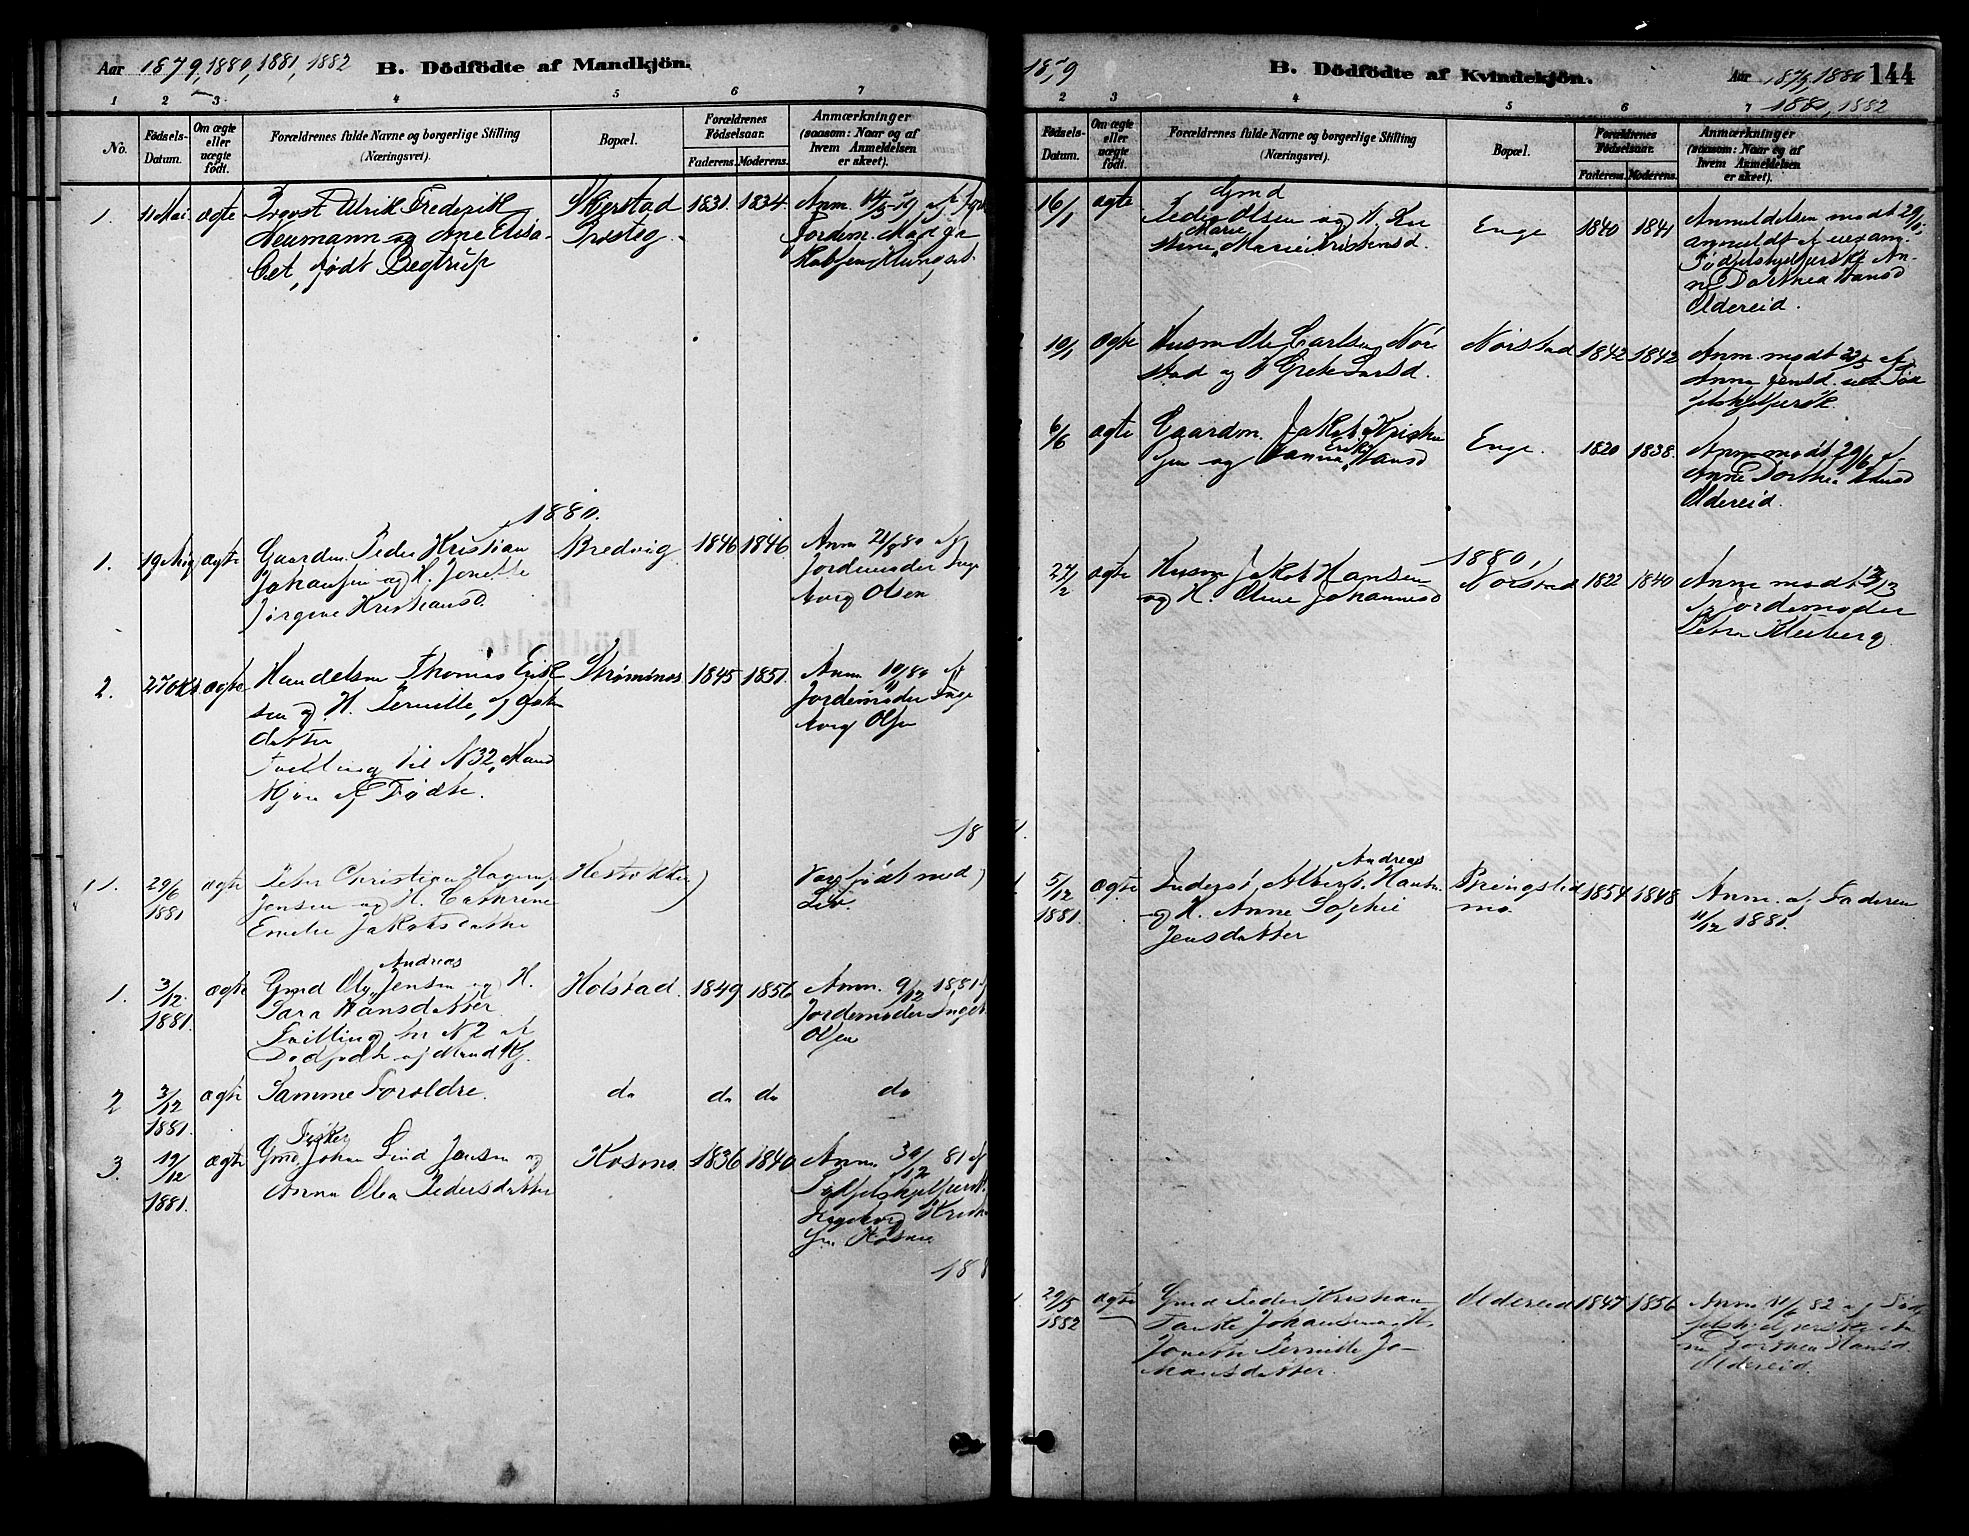 Aar 1879, 1880, 1881, 1882
B. Dödfödte af Mandkjön.
1 2 3 4 5 6 7
No.
Födsels-Datum.
Om ægte eller uægte født.
Forældrenes fulde Navne og borgerlige Stilling (Næringsvei).
Bopæl.
Forældrenes Födselsaar.
Faderens. Moderens.
Anmærkninger (saasom: Naar og af hvem Anmeldelsen er skeet).
1. 11 Mai ægte Provst Ulrik Frederik Skjerstad 1831. 1834.
Neumann og Ane Elisa- Præsteg.
bet, født Begtrup
Jordem.
1880.
1. 19 Aug ægte Gaardm. Peder Kristian Bredvig 1846 1846 Anm. 21/8 80 af
Johansen og H. Jonette Jordemoder Inge
Jørgine Kristiansd. borg Olsen
2. 27 Okt ægte Handelsm Thomas Erik Strømsnes 1845 1851. Anm. 10/11 80 af
sen og H. Pernille Jordemoder Inge
datter borg Olsen
Tvilling til N 32, Mand
kjøn af Fødte.
18
1. 29/6 1881 ægte Peter Christian Hagerup
Jensen og H. Cathrine Var født med
Emelie Jakobsdatter Liv.
Andreas
1. 3/12 1881. ægte Gmd Ole Jensen og H. Holstad. 1849 1856 Anm. 9/12 1881 af
Sara Hansdatter. Jordemoder Ingeb.
Tvilling til N 2 af Olsen
Dødfødte af Mandkj.
2 3/12 1881. ægte Samme Forældre. do do do do
Fisker
3. 19/12 1881. ægte Gmd Johan Lind Jensen og Kosmo. 1836 1840 Anm. 30/12 81 af
Anna Olea Pedersdatter Fødselshjelpersk.
Ingeborg
Kosmo
188
1879
B. Dödfödte af Kvindekjön.
Aar 1879, 1880 144
1881, 1882
2 3 4 5 6 7
Födsels-Datum.
Om ægte eller uægte født.
Forældrenes fulde Navne og borgerlige Stilling (Næringsvei).
Bopæl.
Forældrenes Födselsaar.
Faderens. Moderens.
Anmærkninger (saasom: Naar og af hvem Anmeldelsen er skeet).
16/1 ægte Gmd
Peder Olsen og H. Enge 1840 1841 Anmeldelsen modt
Marie anmeldt af uexam.
Fødselshjelperske An-
ne Dorthea Hansd
Oldereid.
19/1 ægte Husm Ole Carlsen Nor Norstad 1842 1842 Anm. modt af
stad og Grete Larsd. Anna Jensd. uex Fød
selshjelpersk.
6/6 ægte Gaardm. Jakob Kristian Enge. 1820 1838. Anm modt 29/6 af
sen og Hanna Hansd Anne Dorthea Hansd
Oldereid
1880,
27/2 ægte Husm Jakob Hansen Norstad 1822 1840 Anm modt
og H. Oline Johannesd af Jordemoder
Petra Kleiberg.
5/12 1881. ægte Inderst Albert Andreas Hansen Bringslid 1854 1848 Anm. af Faderen
og H. Anne Sophie mo. 11/12 1881.
Jensdatter
29/5 1882 ægte Gmd Peder Kristian Oldereid 1847 1856 Anm 82 af Fød
Johansen og H. selshjelperske An
Jonette Pernille Jo- ne Dorthea Hansd
hansdatter. Oldereid.